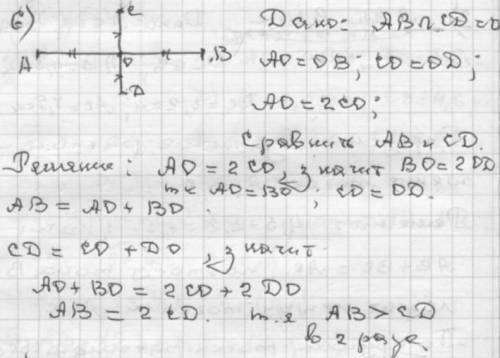 6)
C
A O B
D
Дано: AB ∩ CD = O
AO = OB; CO = OD;
AO = 2CO;
Сравнить AB и CD.
Решение: AO = 2CO, значит BO = 2DO
т.к AO = BO; CO = OD.
AB = AO + BO.
CD = CO + DO, значит
AO + BO = 2CO + 2DO
AB = 2CD. т.е AB > CD
в 2 раза.